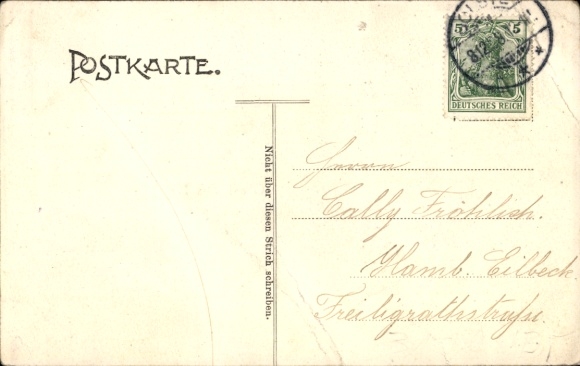 POSTKARTE.
5 5
DEUTSCHES REICH
Nicht über diesen Strich schreiben.
Herrn
Cally Fröhlich.
Hamb. Eilbeck
Freiligrathstraße.